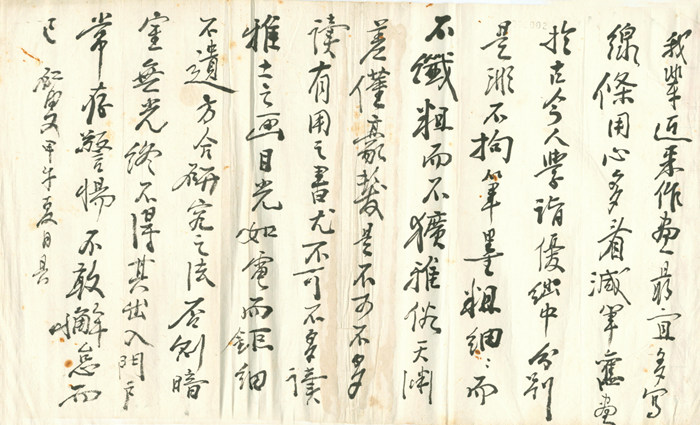 我輩近來作畫最宜多寫
線條用心多看減筆舊畫
於古今人學詣優絀中分別
是非不拘筆墨粗細〻而
不纖粗而不獷雅俗天淵
差僅豪髮是不可不多
讀有用之書尤不可不多讀
雅士之画目光如電而鉅細
不遺方合研究之法否則暗
室無光終不得其出入門戶
常存警惕不敢懈怠而
已 虹叟甲午夏日具